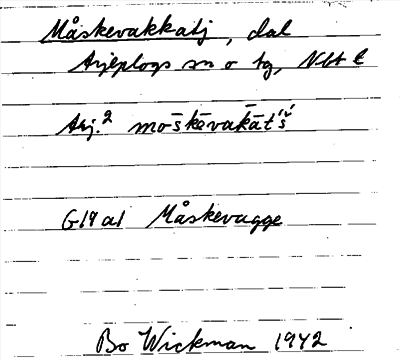 Måskevakkatj, dal
Arjeplogs sn o tg, Nbt l
Arj.2 mo̅šk̄ēvak̄āt́š́
G19a1 Måskevagge
Bo Wickman 1942